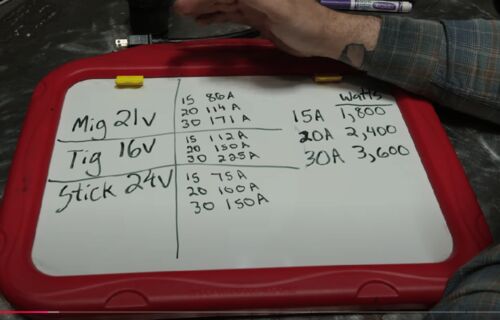 Mig 21v
15 86A
20 114A
30 171A
Tig 16v
15 112A
20 150A
30 225A
Stick 24v
15 75A
20 100A
30 150A
Watts
15A 1,800
20A 2,400
30A 3,600